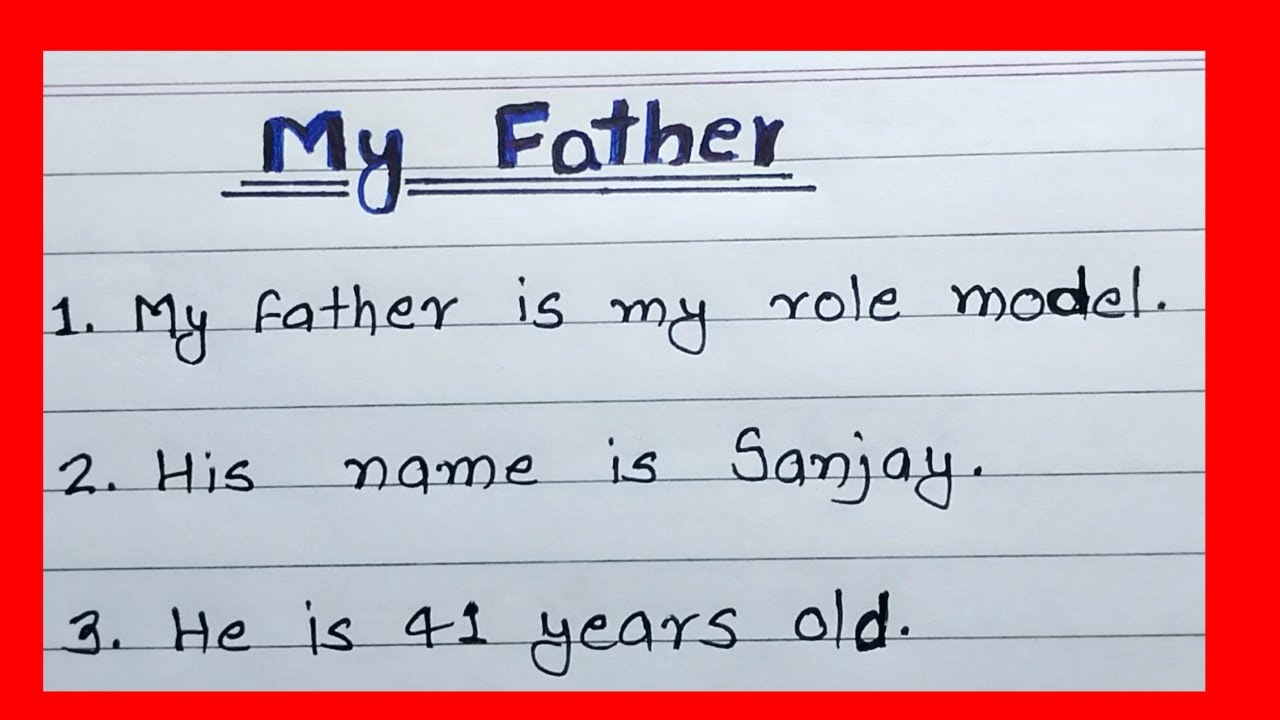 My Father
1. My Father is my role model.
2. His name is Sanjay.
3. He is 41 years old.